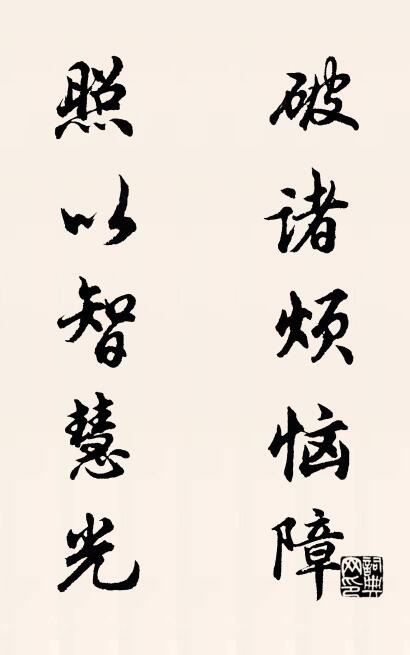 破诸烦恼障
照以智慧光
詞典
网印